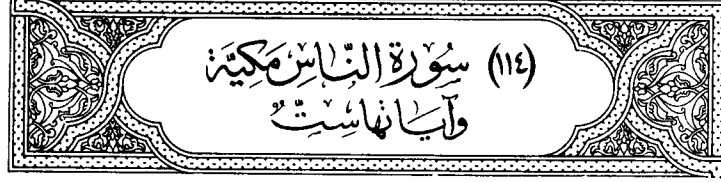 (١١٤) سُورَةُ النَّاسِ مَكِيَّة
وَآيَاتُهَا سِتٌّ